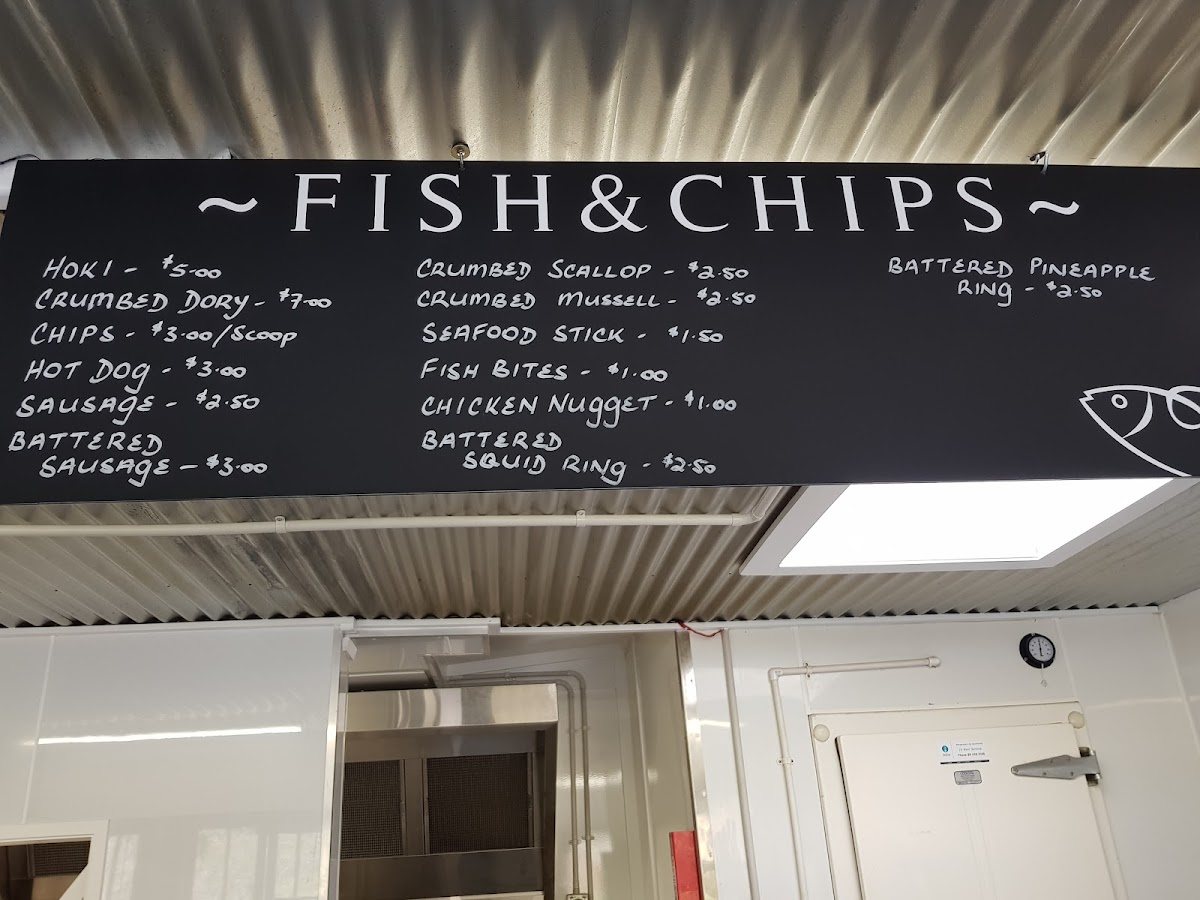 ~FISH&CHIPS~
HOKI - $5.00
CRUMBED DORY - $7.00
CHIPS - $3.00/SCOOP
HOT DOG - $3.00
SAUSAGE - $2.50
BATTERED
SAUSAGE - $3.00
CRUMBED SCALLOP - $2.50
CRUMBED MUSSELL - $2.50
SEAFOOD STICK - $1.50
FISH BITES - $1.00
CHICKEN NUGGET - $1.00
BATTERED
SQUID RING - $2.50
BATTERED PINEAPPLE
RING - $2.50